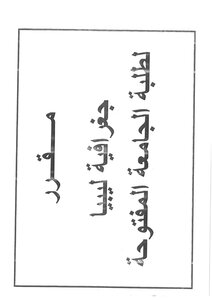 مـقـرر
جغرافية ليبيا
لطلبة الجامعة المفتوحة